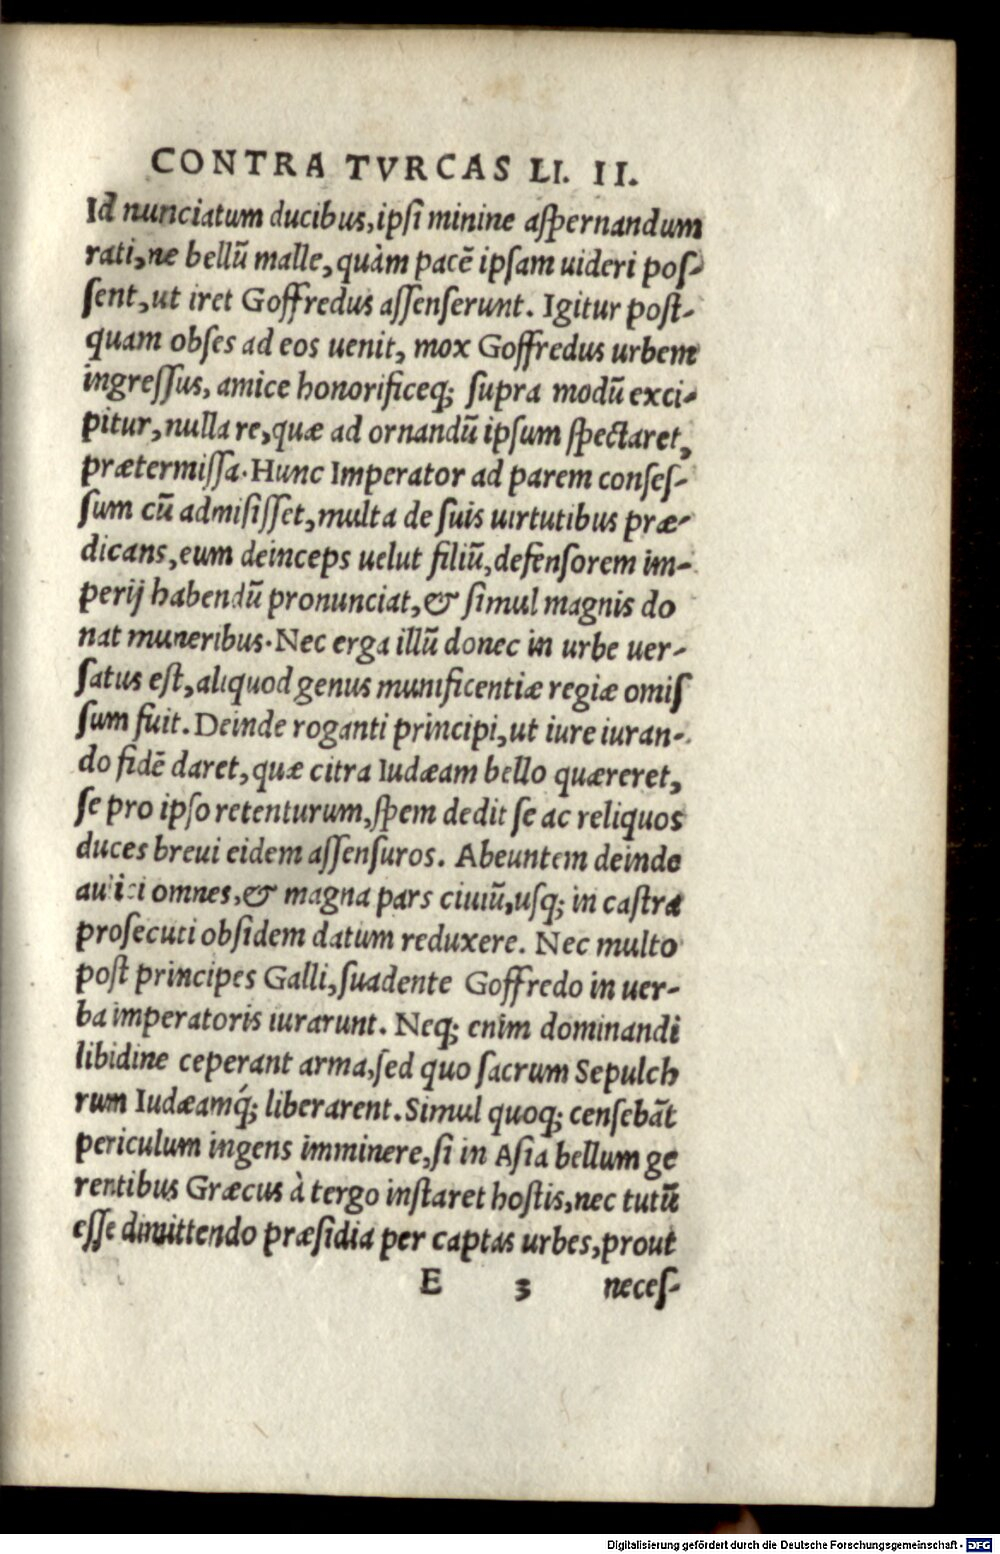 CONTRA TVRCAS LI. II.
Id nunciatum ducibus, ipſi minine aſpernandum
rati, ne bellũ malle, quàm pacẽ ipſam uideri poſ-
ſent, ut iret Goffredus aſſenſerunt. Igitur poſt-
quam obſes ad eos uenit, mox Goffredus urbem
ingreſſus, amice honorificeq; ſupra modũ exci-
pitur, nulla re, quæ ad ornandũ ipſum ſpectaret,
prætermiſſa. Hunc Imperator ad parem conſeſ-
ſum cũ admiſiſſet, multa de ſuis uirtutibus præ-
dicans, eum deinceps uelut filiũ, defenſorem im-
perij habendũ pronunciat, & ſimul magnis do
nat muneribus. Nec erga illũ donec in urbe uer-
ſatus eſt, aliquod genus munificentiæ regiæ omiſ
ſum fuit. Deinde roganti principi, ut iure iuran-
do fidẽ daret, quæ citra Iudæam bello quæreret,
ſe pro ipſo retenturum, ſpem dedit ſe ac reliquos
duces breui eidem aſſenſuros. Abeuntem deinde
omnes, & magna pars ciuiũ, uſq; in caſtra
proſecuti obſidem datum reduxere. Nec multo
poſt principes Galli, ſuadente Goffredo in uer-
ba imperatoris iurarunt. Neq; enim dominandi
libidine ceperant arma, ſed quo ſacrum Sepulch
rum Iudæamq́; liberarent. Simul quoq; cenſebãt
periculum ingens imminere, ſi in Aſia bellum ge
rentibus Græcus à tergo inſtaret hoſtis, nec tutũ
eſſe dimittendo præſidia per captas urbes, prout
E 3 neceſ-
Digitalisierung gefördert durch die Deutsche Forschungsgemeinschaft - DFG